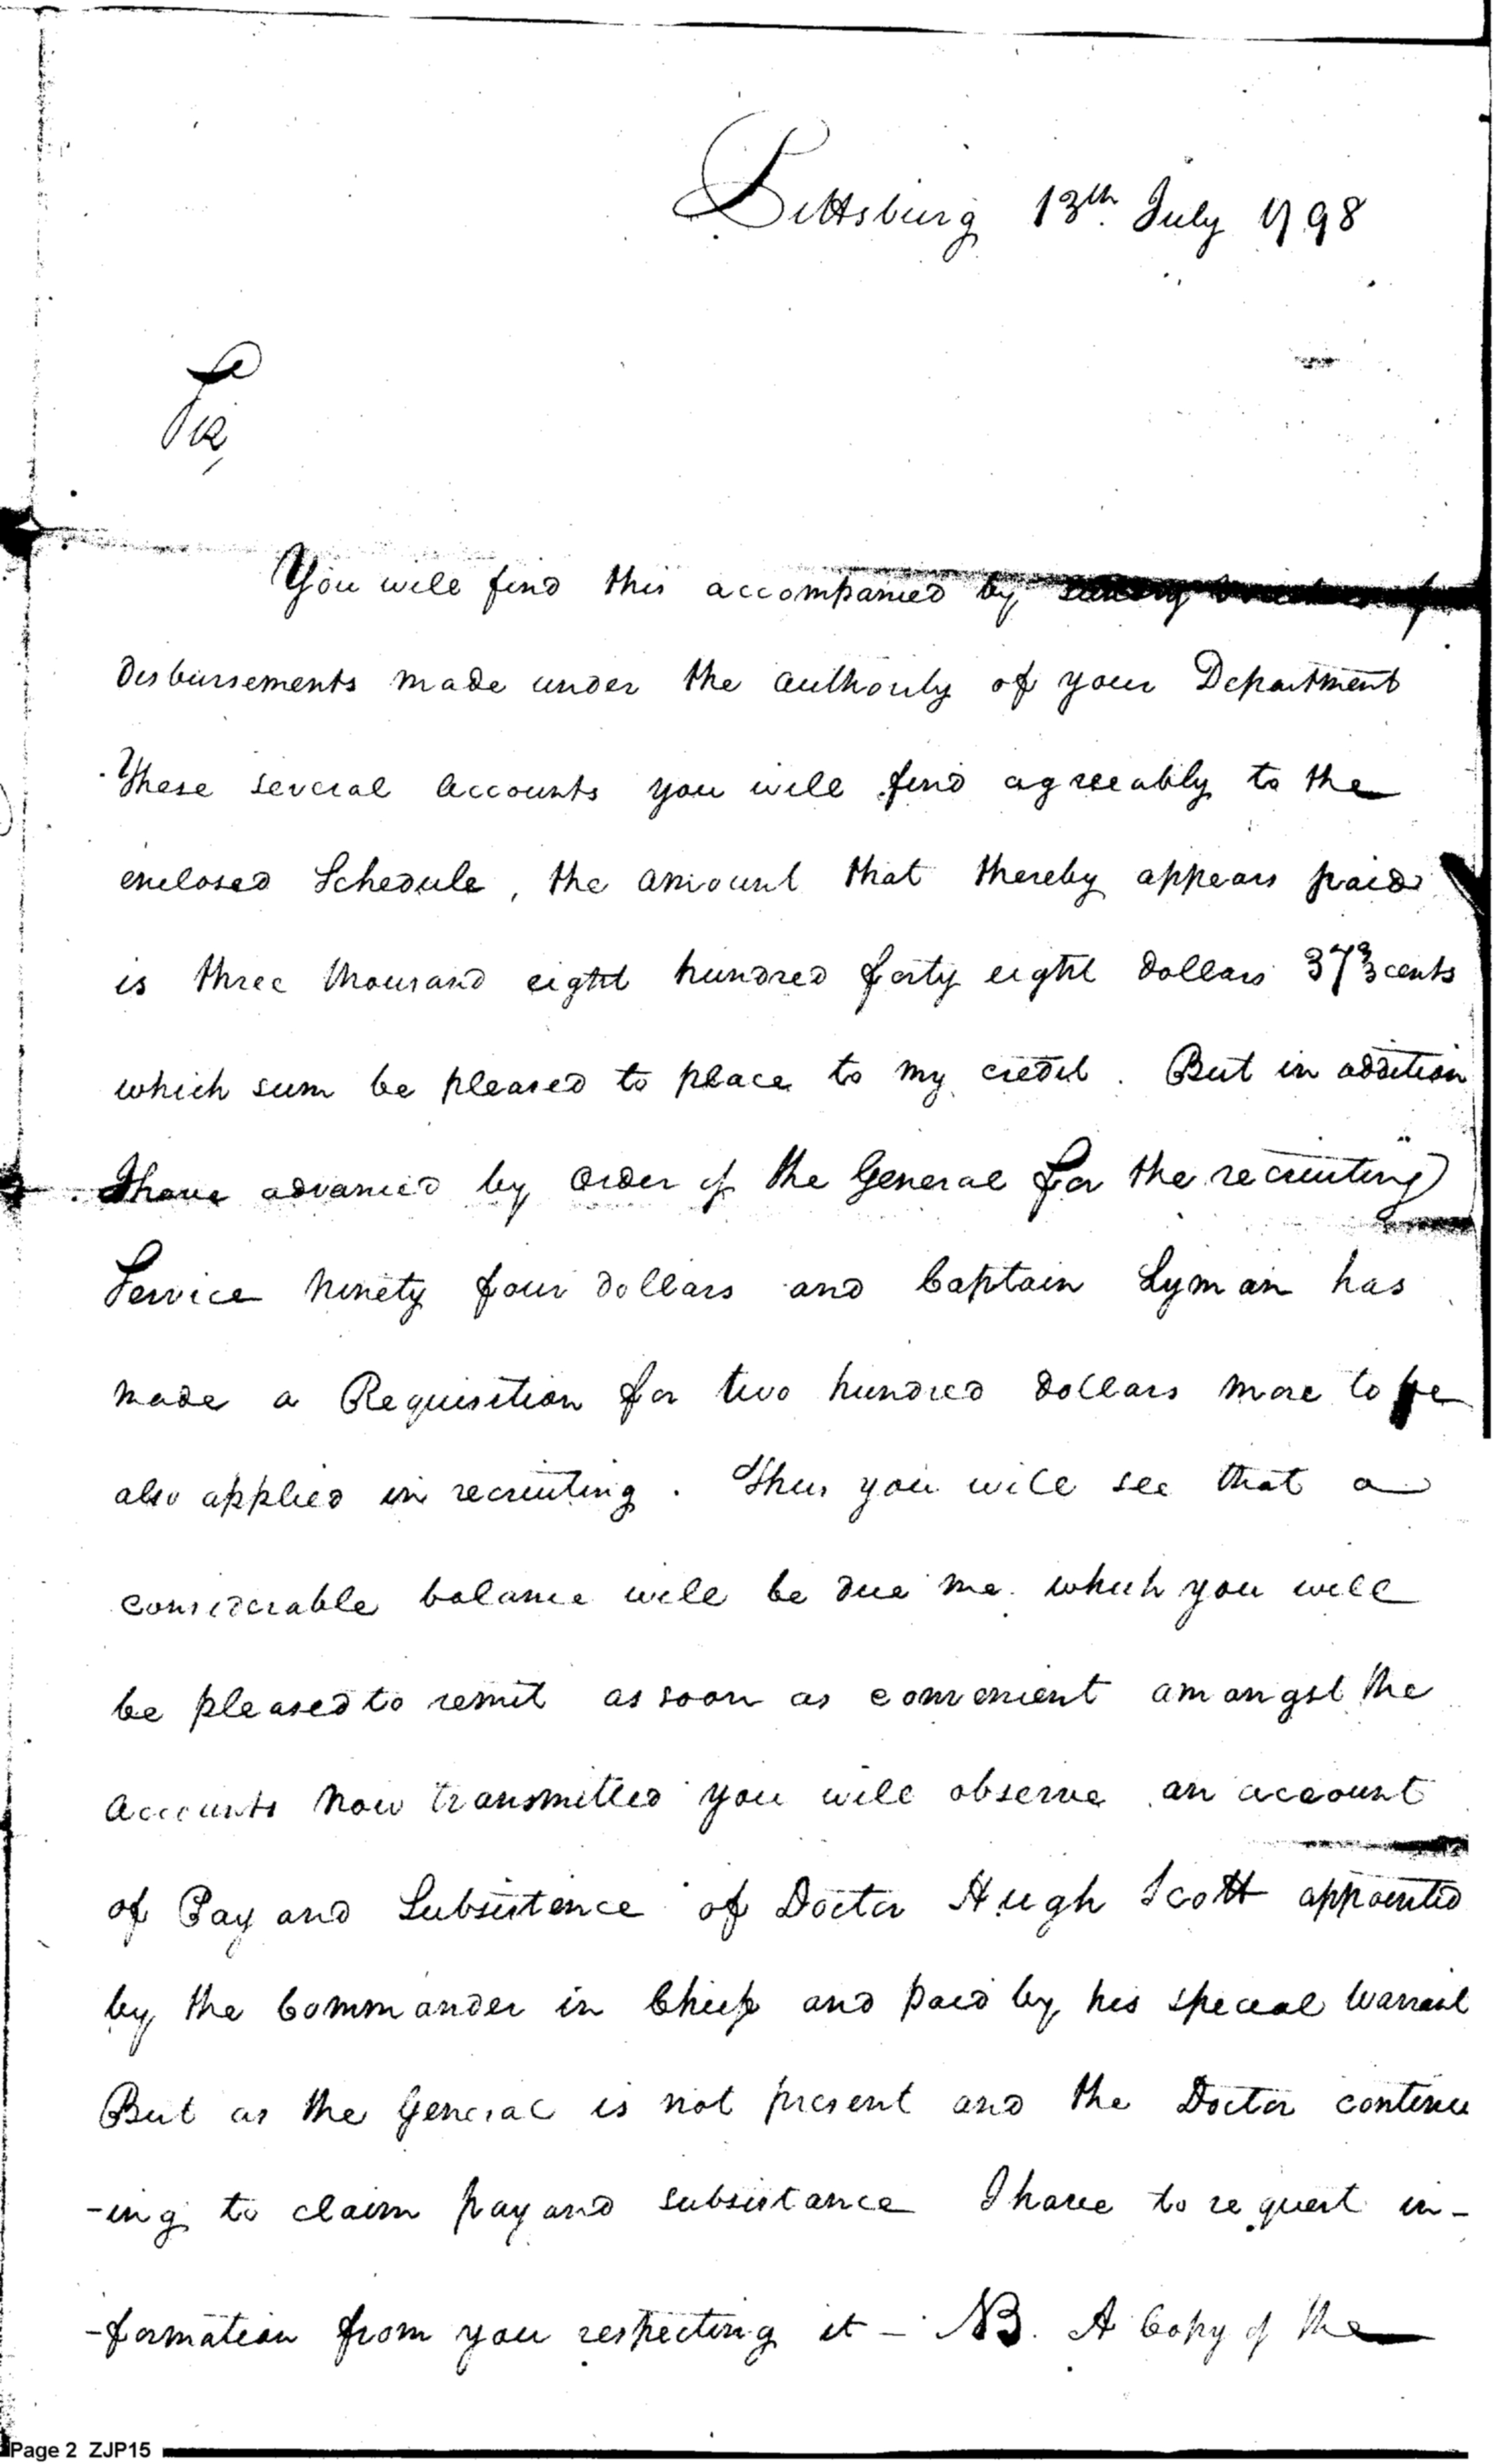 Pittsburg 13th July 1798
Sir,
You will find this accompanied by sundry
disbursements made under the authority of your Department
These several accounts you will find agreeably to the
enclosed Schedule, the amount that thereby appears paid
is three thousand eight hundred forty eight dollars 37 2/3 cents
which sum be pleased to place to my credit. But in addition
I have advanced by order of the General for the recruiting
Service ninety four dollars and Captain Lyman has
made a Requisition for two hundred dollars more to be
also applied in recruiting. Thus you will see that a
considerable balance will be due me which you will
be pleased to remit as soon as convenient amongst the
accounts now transmitted you will observe an account
of Pay and Subsistence of Doctor Hugh Scott appointed
by the Commander in Chief and paid by his special Warrant
But as the General is not present and the Doctor continu
-ing to claim pay and subsistance I have to request in-
-formation from you respecting it - NB. A Copy of the
Page 2 ZJP15